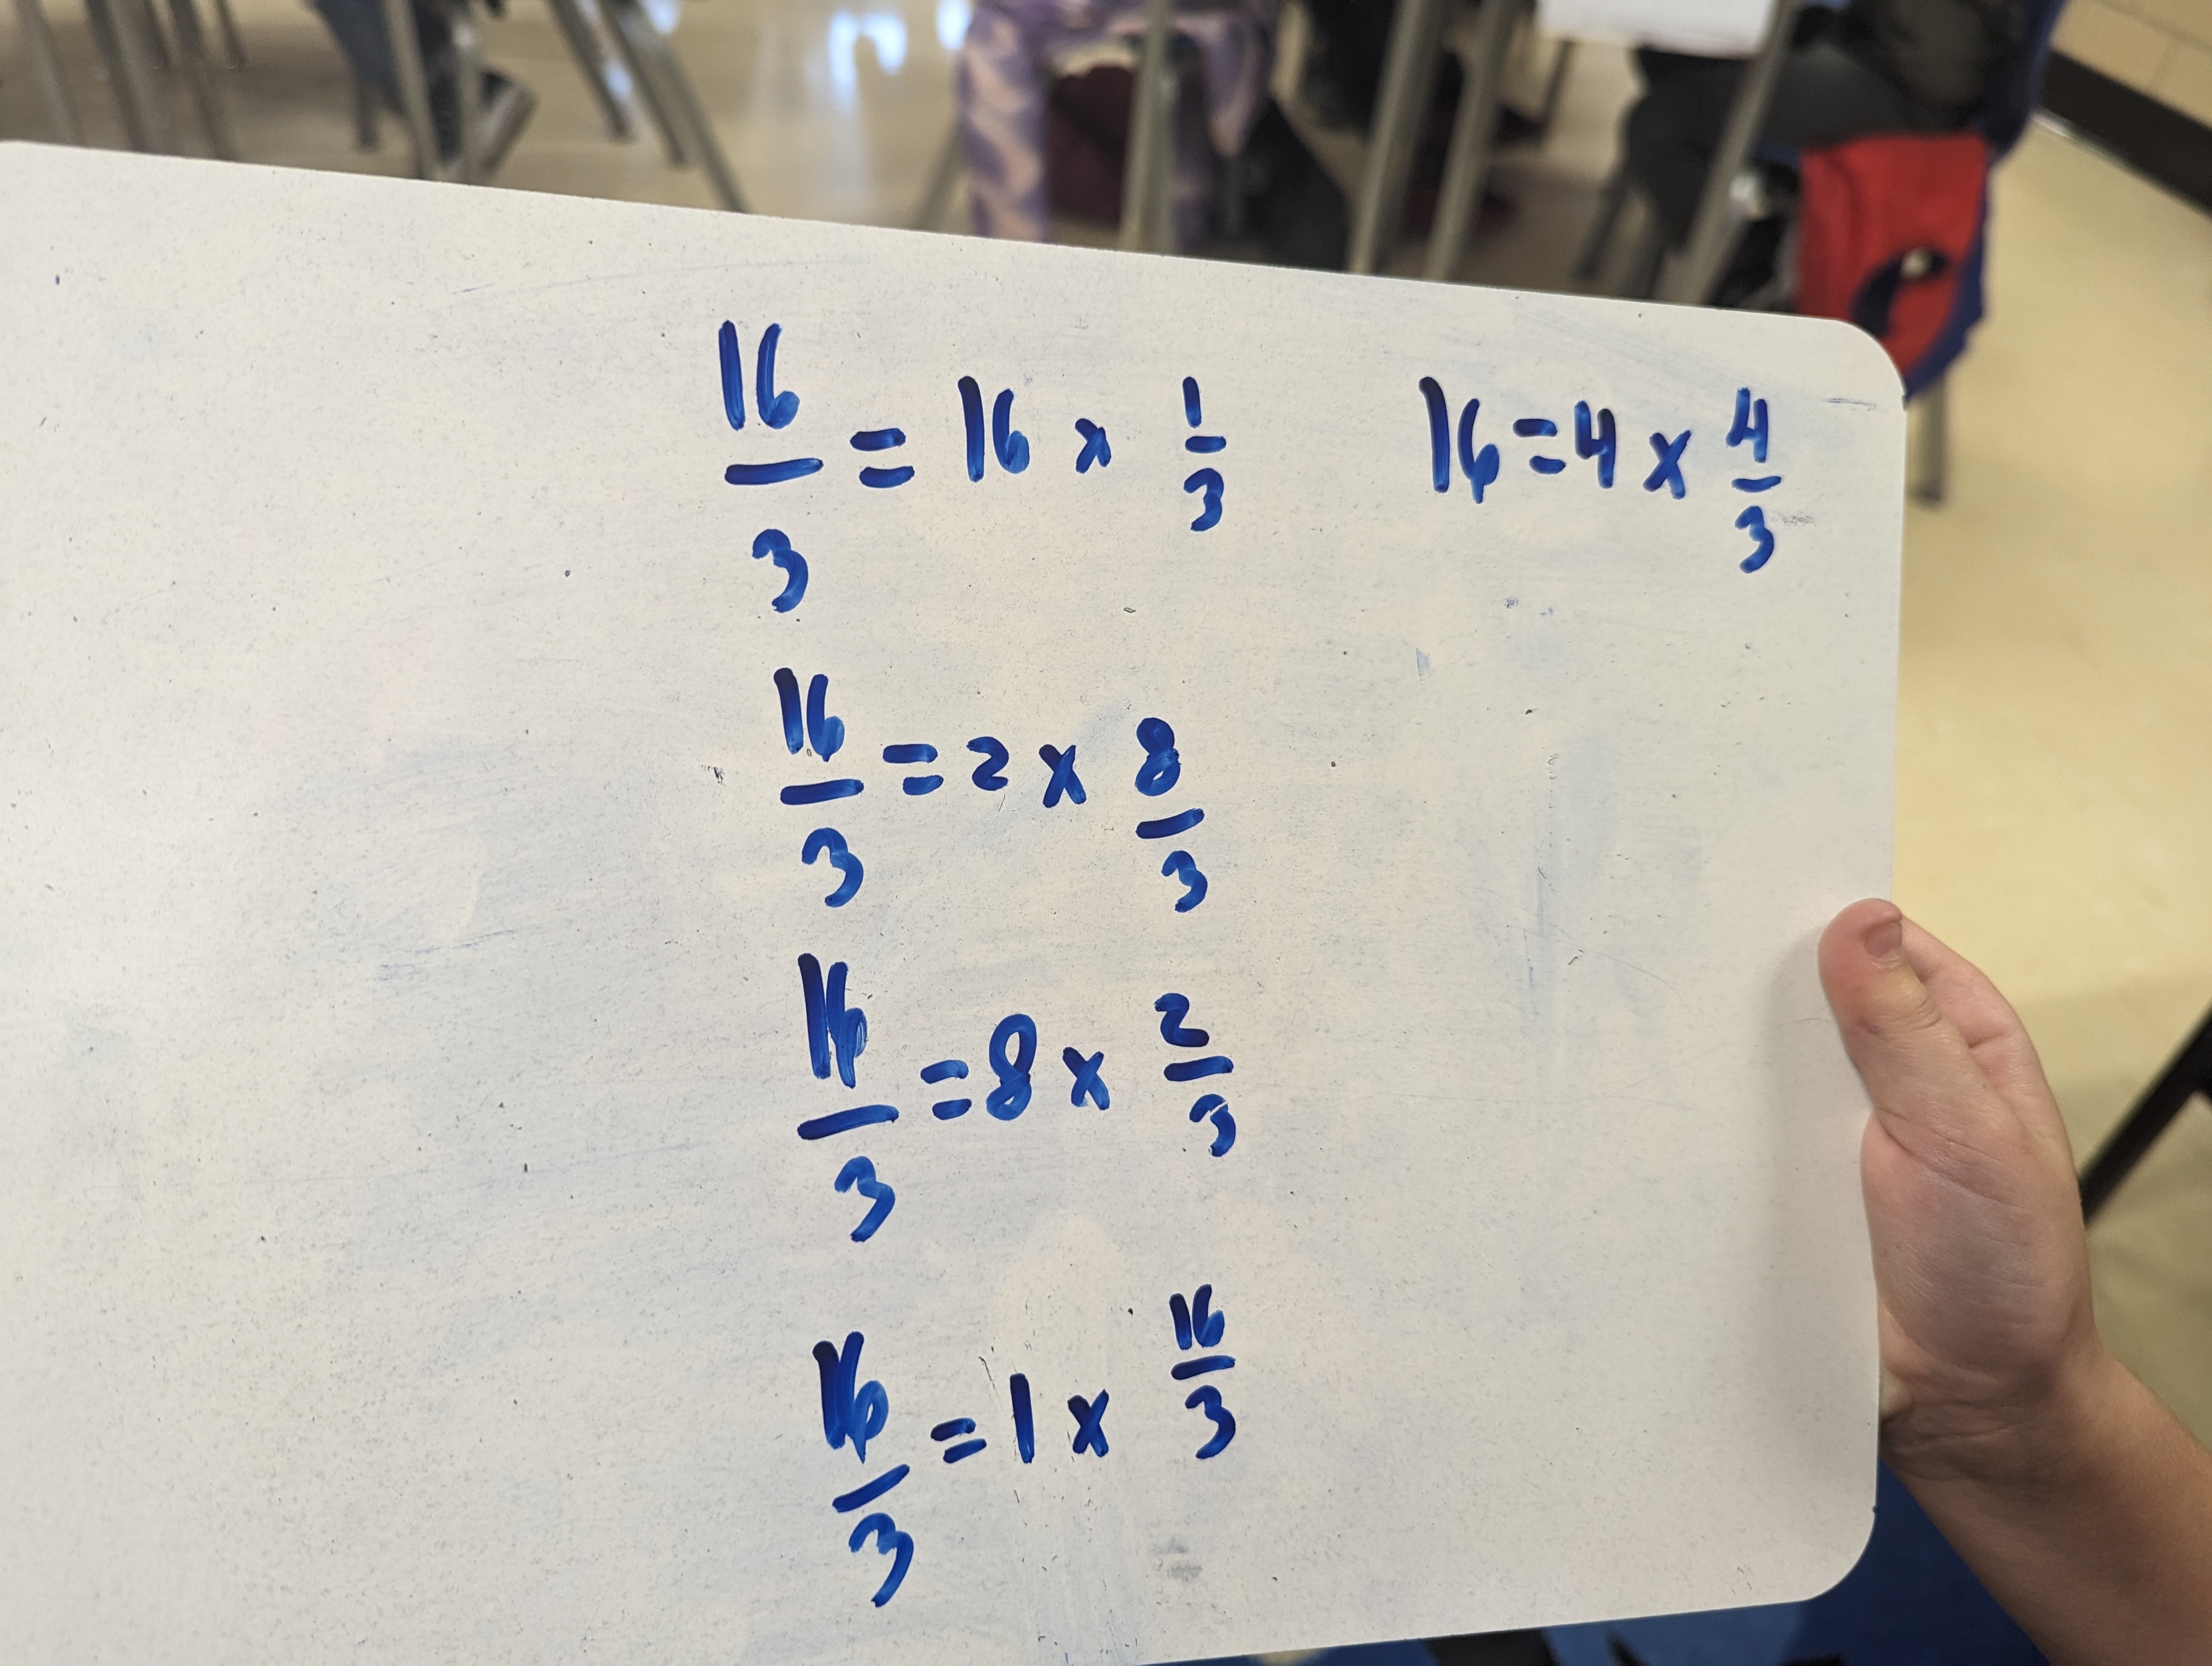 16/3 = 16 x 1/3
16 = 4 x 4/3
16/3 = 2 x 8/3
16/3 = 8 x 2/3
16/3 = 1 x 16/3